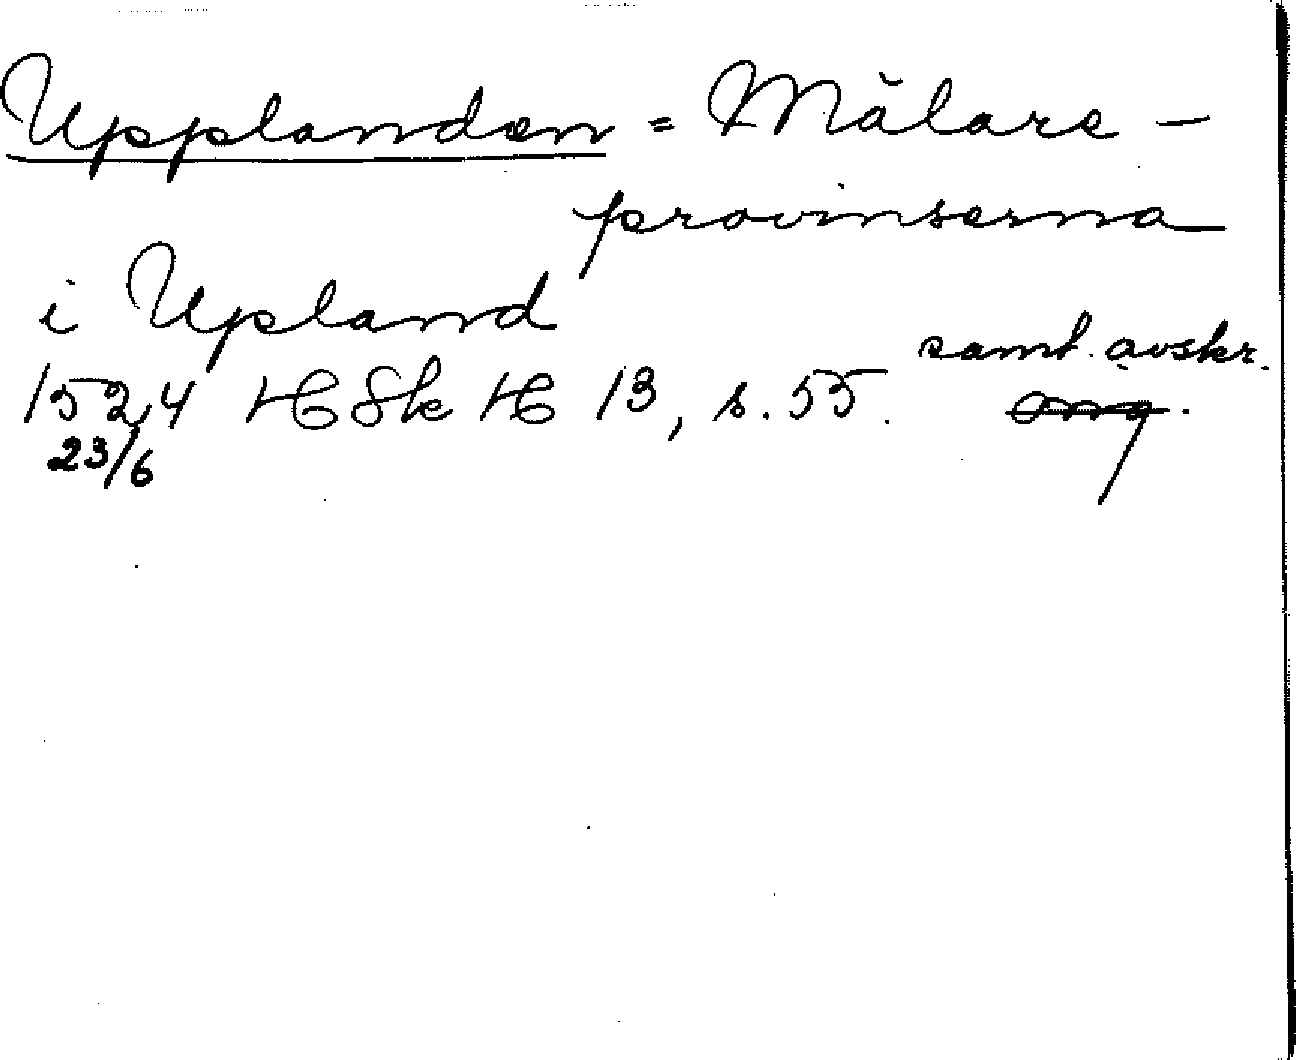 Upplanden = Mälare-
provinserna
i Upland
samt. avskr.
1524 HSkH 13, s. 55.
23/6